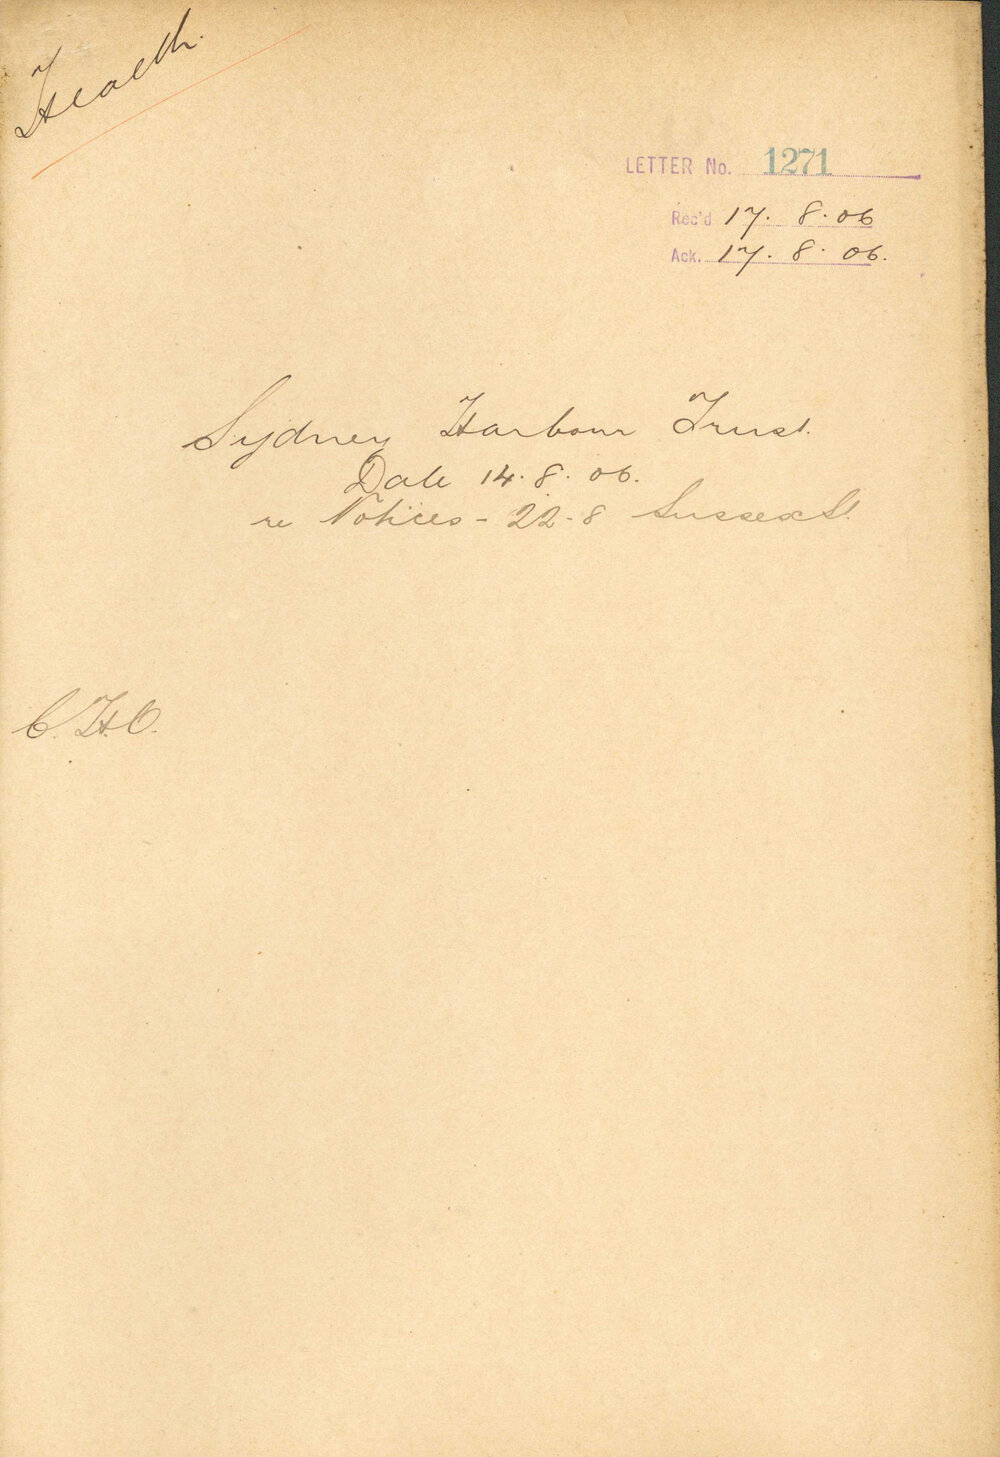 Health.
LETTER No. 1271
Rec'd 17. 8. 06
Ack. 17. 8. 06.
Sydney Harbour Trust.
Date 14. 8. 06.
re Notices - 22-8 Sussex St.
C.H.O.